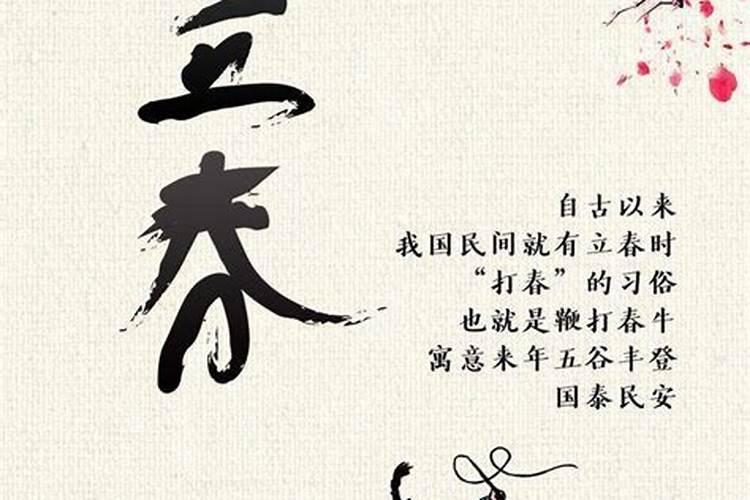 立春
自古以来
我国民间就有立春时
“打春”的习俗
也就是鞭打春牛
寓意来年五谷丰登
国泰民安